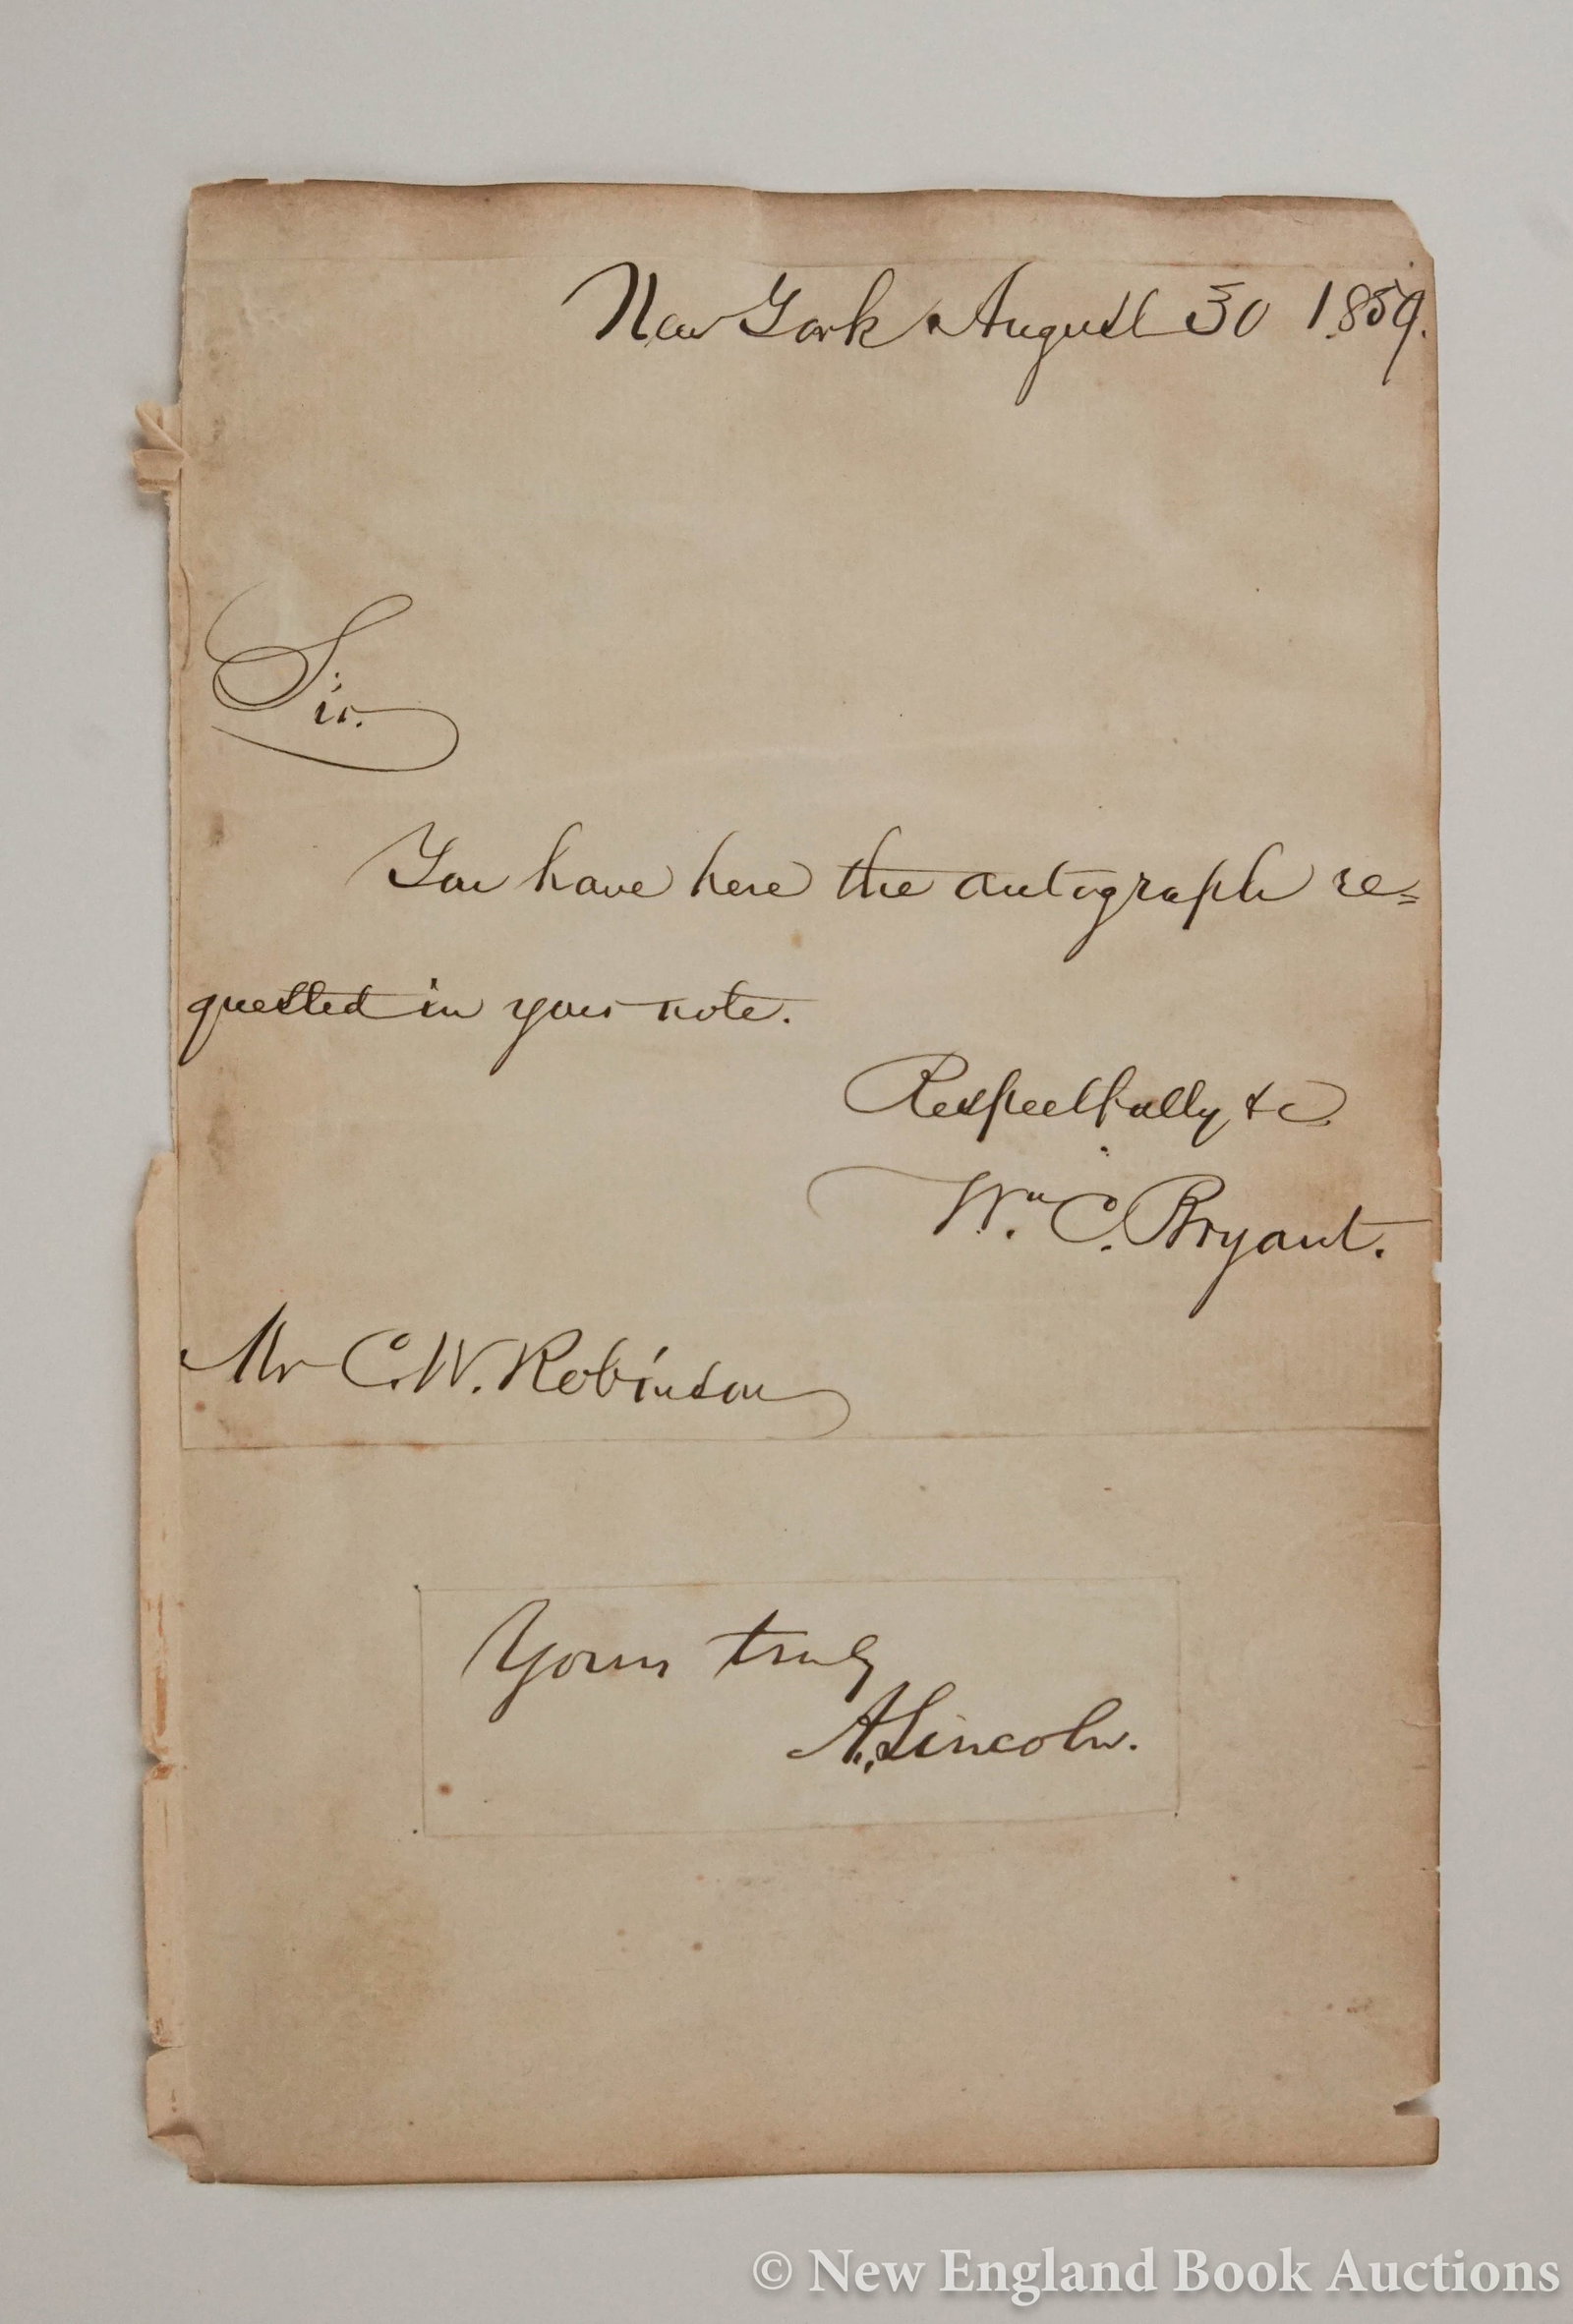 New York August 30 1859.
Sir.
You have here the autograph re=
quested in your note.
Respectfully &c
Wm. C. Bryant.
Mr C. W. Robinson
Yours truly
A. Lincoln.
© New England Book Auctions